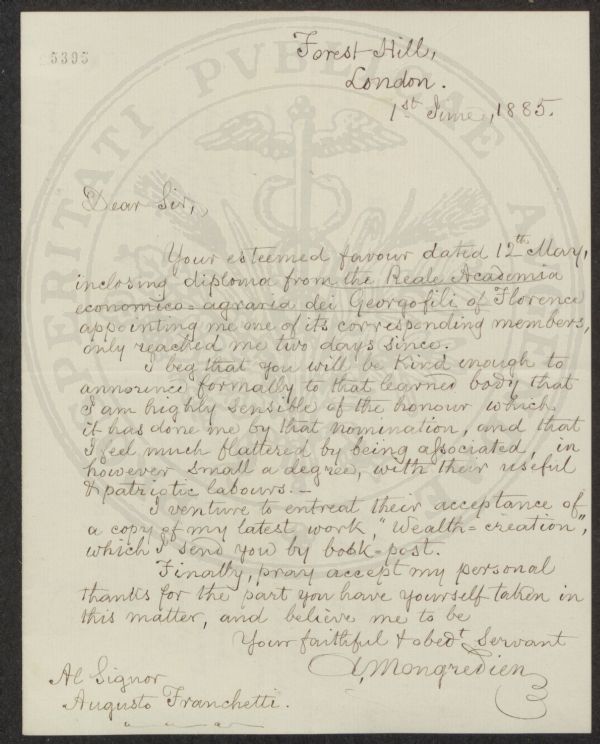 5395
Forest Hill,
London.
1st June, 1885.
Dear Sir,
Your esteemed favour dated 12th May,
inclosing diploma from the Reale Academia
economico-agraria dei Georgofili of Florence
appointing me one of its corresponding members,
only reached me two days since.
I beg that you will be kind enough to
announce formally to that learned body that
I am highly sensible of the honour which
it has done me by that nomination, and that
I feel much flattered by being associated, in
however small a degree, with their useful
& patriotic labours.—
I venture to entreat their acceptance of
a copy of my latest work, "Wealth-creation",
which I send you by book-post.
Finally, pray accept my personal
thanks for the part you have yourself taken in
this matter, and believe me to be
Your faithful & obedt Servant
A. Mongredien
Al Signor
Augusto Franchetti.
PROSPERITATI PVBLICAE AVGENDAE